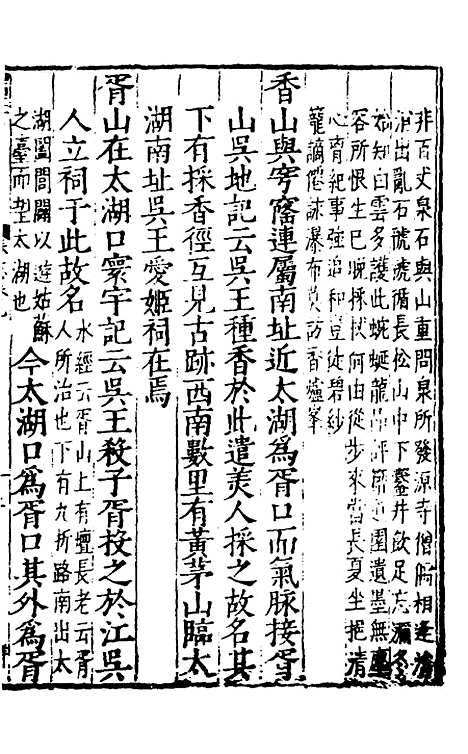 非百丈泉石與山重問泉所發源寺僧胸相逢清
出亂石號號循長松山中下鑿井飲足忘
始知白雲多護此蜿蜒龍品評園遺墨無
容所恨生已晚採拭何由從步來當長夏坐挹清
心齋紀事強追和豈徒碧紗
籠謫僊詠瀑布莫訪香爐峯
香山與穹窿連屬南址近太湖為胥口而氣脉接胥
山吳地記云吳王種香於此遣美人採之故名其
下有採香徑互見古跡西南數里有黃茅山臨太
湖南址吳王愛姬祠在焉
胥山在太湖口寰宇記云吳王殺子胥投之於江吳
人立祠于此故名水經云胥山上有壇長老云胥
人所治也下有九折路南出太
湖闔閭闢以遊姑蘇
之臺而望太湖也今太湖口為胥口其外為胥